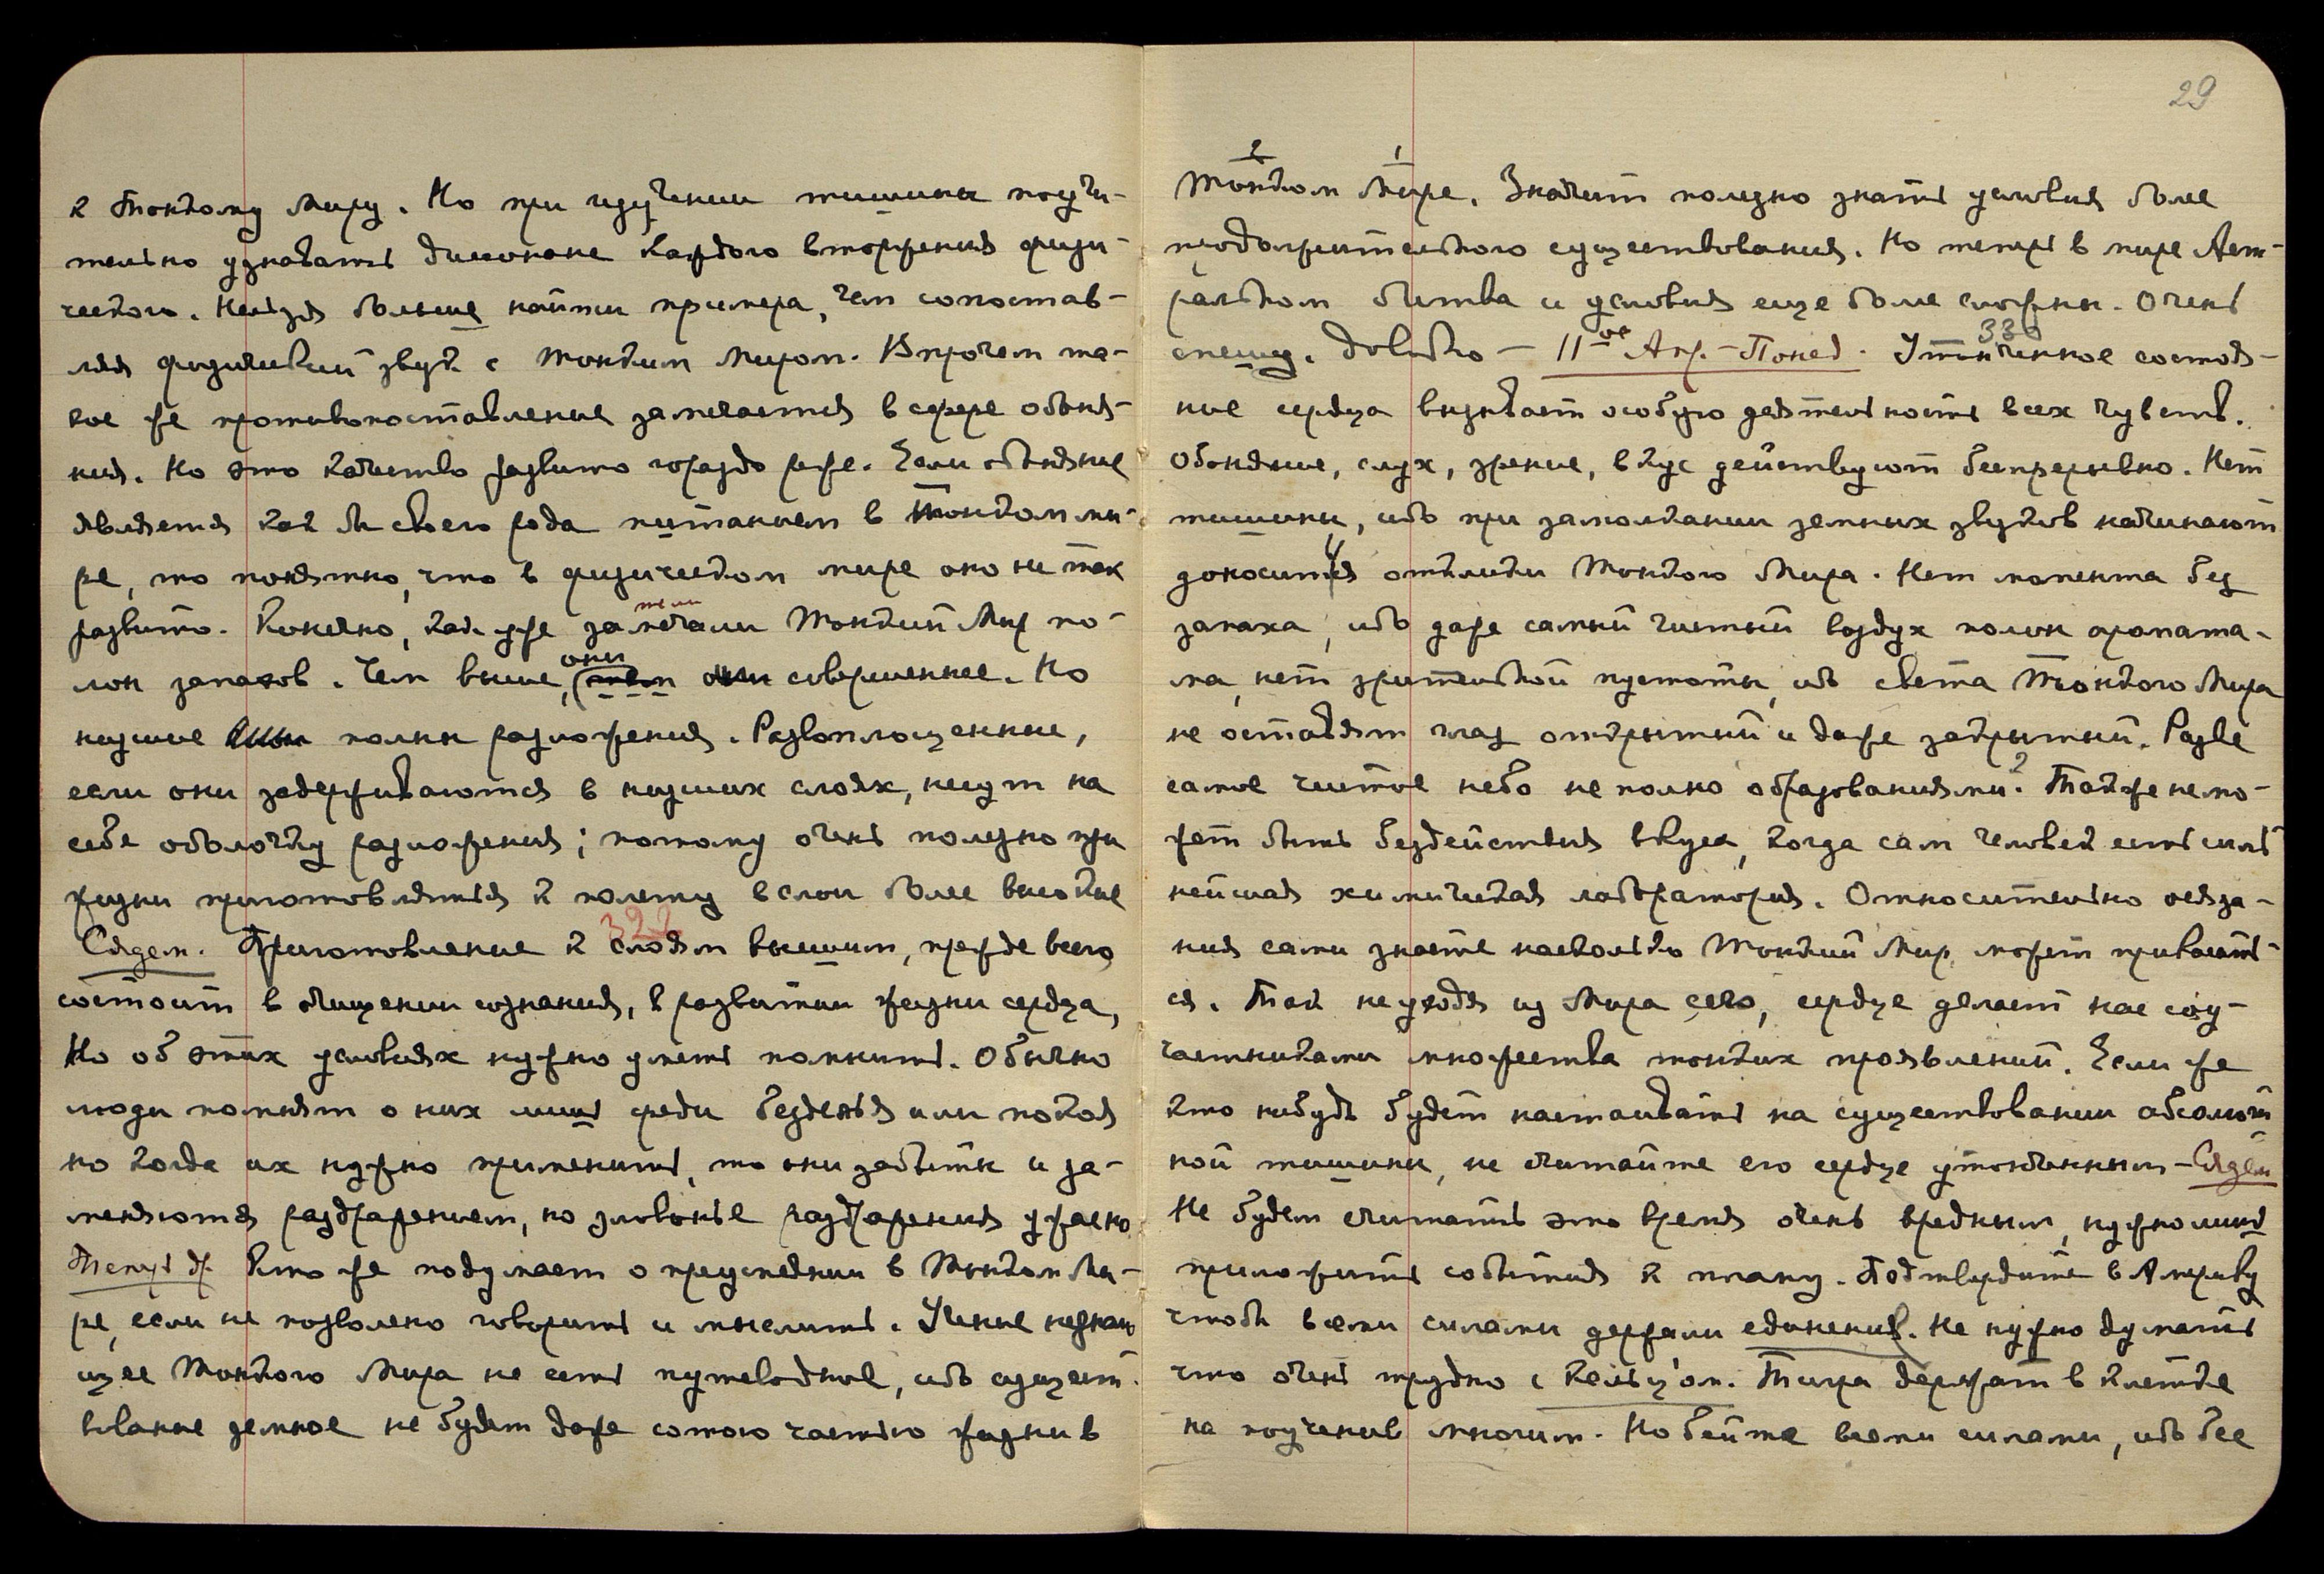 к Тонкому Миру. Но при изучении тишины поучи-
тельно узнавать дисконанс каждого вторжения физи-
ческого. Нельзя больше найти примера, чем сопостав-
ляя физический звук с Тонким Миром. Впрочем та-
кое же противопоставление замечается в сфере обоня-
ния. Но это качество развито гораздо реже. Если обоняние
является как бы своего рода питанием в Тонком ми-
ре, то понятно, что в физическом мире оно не так
развито. Конечно, как уже замечали Тонкий Мир по-
тили
лон запахов. Чем выше, тем они совершеннее. Но
они
низшие полны разложения. Развоплощенные,
если они задерживаются в низших слоях, несут на
себе оболочку разложения; потому очень полезно при
жизни приготовляться к полету в слои более высокие
Сядем. Приготовление к слоям высшим, прежде всего,
322
состоит в очищении сознания, в развитии жизни сердца,
Но об этих условиях нужно уметь помнить. Обычно
люди помнят о них лишь среди безделья или покоя
но когда их нужно применить, то они забыты и за-
меняются раздражением, но зловонье раздражения ужасно.
Теперь др. Кто же подумает о преуспеянии в Тонком Ми-
ре, если не позволено говорить и мыслить. Учение незнаю
щее Тонкого Мира не есть путеводное, ибо сущест-
вование земное не будет даже сотою частью жизни в
29
2 1
Тонком Мире. Значит полезно знать условия более
продолжительного существования. Но теперь в мире Аст-
ральном битва и условия еще более сложны. Очень
спешу. Довольно — 11ое Апр. - Понед. Утонченное состоя-
330
ние сердца вызывает особую деятельность всех чувств.
Обоняние, слух, зрение, вкус действуют беспрерывно. Нет
тишины, ибо при замолкании земных звуков начинают
доноситься отклики Тонкого Мира. Нет момента без
запаха, ибо даже самый чистый воздух полон аромата-
ма, нет зрительной пустоты, ибо света Тонкого Мира
не оставят глаз открытый и даже закрытый. Разве
самое чистое небо не полно образованиями? Также не мо-
жет быть бездействия вкуса, когда сам человек есть силь
нейшая химическая лаборатория. Относительно осяза-
ния сами знаете насколько Тонкий Мир может прикасать-
ся. Так не уходя из Мира сего, сердце делает нас соу-
частниками множества тонких проявлений. Если же
кто нибудь будет настаивать на существовании абсолют
ной тишины, не считайте его сердце утонченным — Сядем
Не будем считать это время очень вредным, нужно лишь
приложить события к плану. Подтвердите в Америку
чтобы всеми силами держали единение. Не нужно думать
что очень трудно с Кельц'ом. Тигра держат в клетке
на поучение многим. Но бейте всеми силами, ибо без